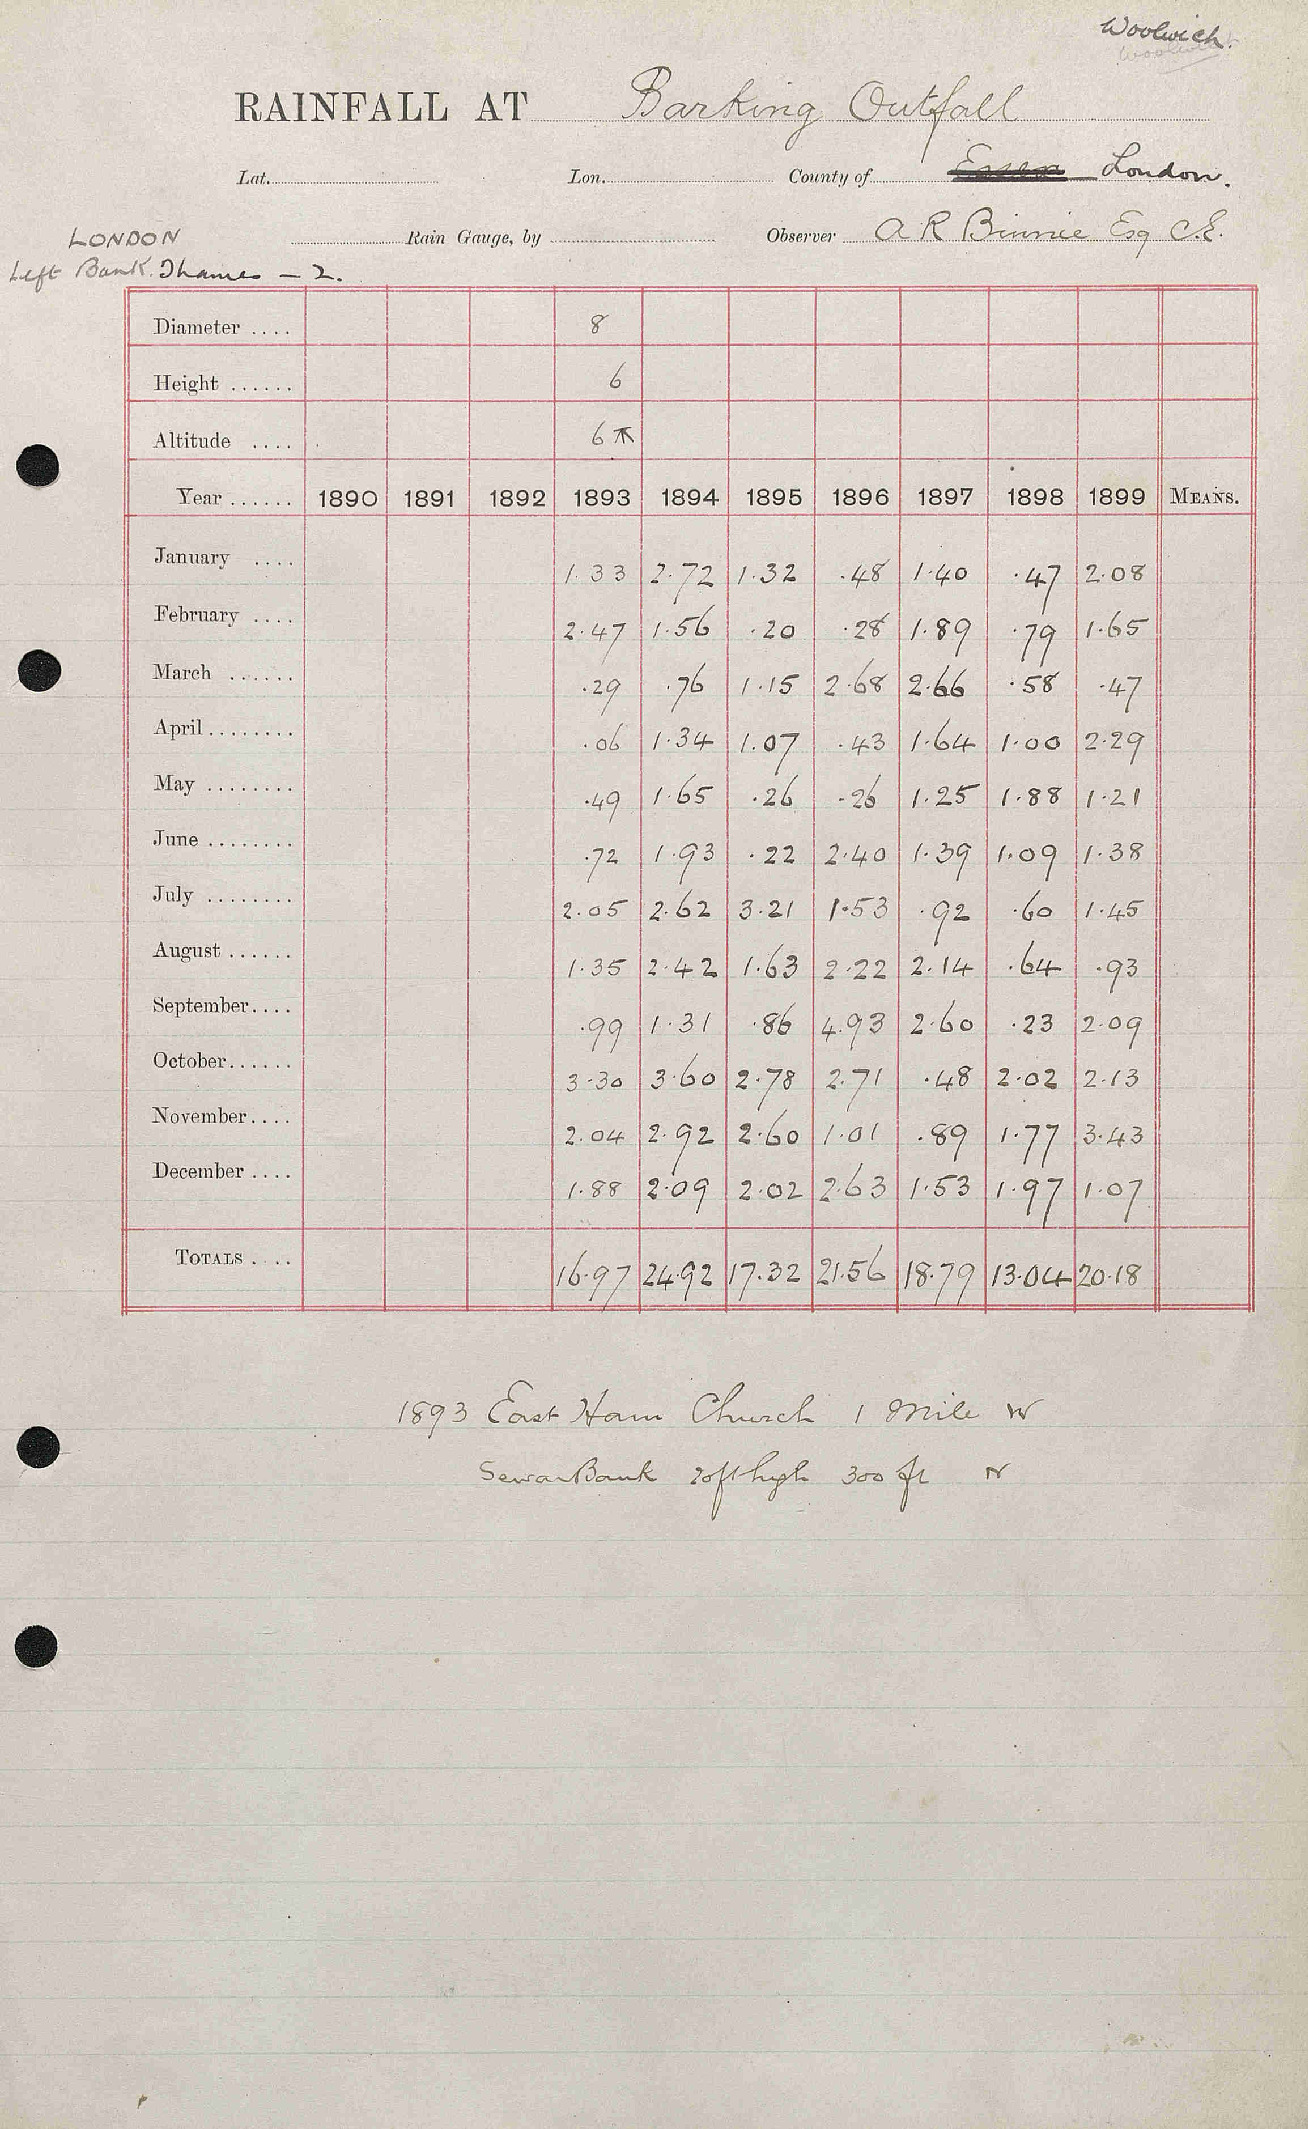 Woolwich.
RAINFALL AT Barking Outfall
Lat. Lon. County of Essex London.
LONDON Rain Gauge, by Observer A R Binnie Esq C.E.
Left Bank Thames — 2.
Diameter .... 8
Height ...... 6
Altitude .... 6
Year ...... 1890 1891 1892 1893 1894 1895 1896 1897 1898 1899 MEANS.
January .... 1.33 2.72 1.32 .48 1.40 .47 2.08
February .... 2.47 1.56 .20 .28 1.89 .79 1.65
March ...... .29 .76 1.15 2.68 2.66 .58 .47
April ........ .06 1.34 1.07 .43 1.64 1.00 2.29
May ........ .49 1.65 .26 .26 1.25 1.88 1.21
June ........ .72 1.93 .22 2.40 1.39 1.09 1.38
July ........ 2.05 2.62 3.21 1.53 .92 .60 1.45
August ...... 1.35 2.42 1.63 2.22 2.14 .64 .93
September.... .99 1.31 .86 4.93 2.60 .23 2.09
October...... 3.30 3.60 2.78 2.71 .48 2.02 2.13
November.... 2.04 2.92 2.60 1.01 .89 1.77 3.43
December .... 1.88 2.09 2.02 2.63 1.53 1.97 1.07
TOTALS .... 16.97 24.92 17.32 21.56 18.79 13.04 20.18
1893 East Ham Church 1 Mile W
Bank 20ft high 300 ft N